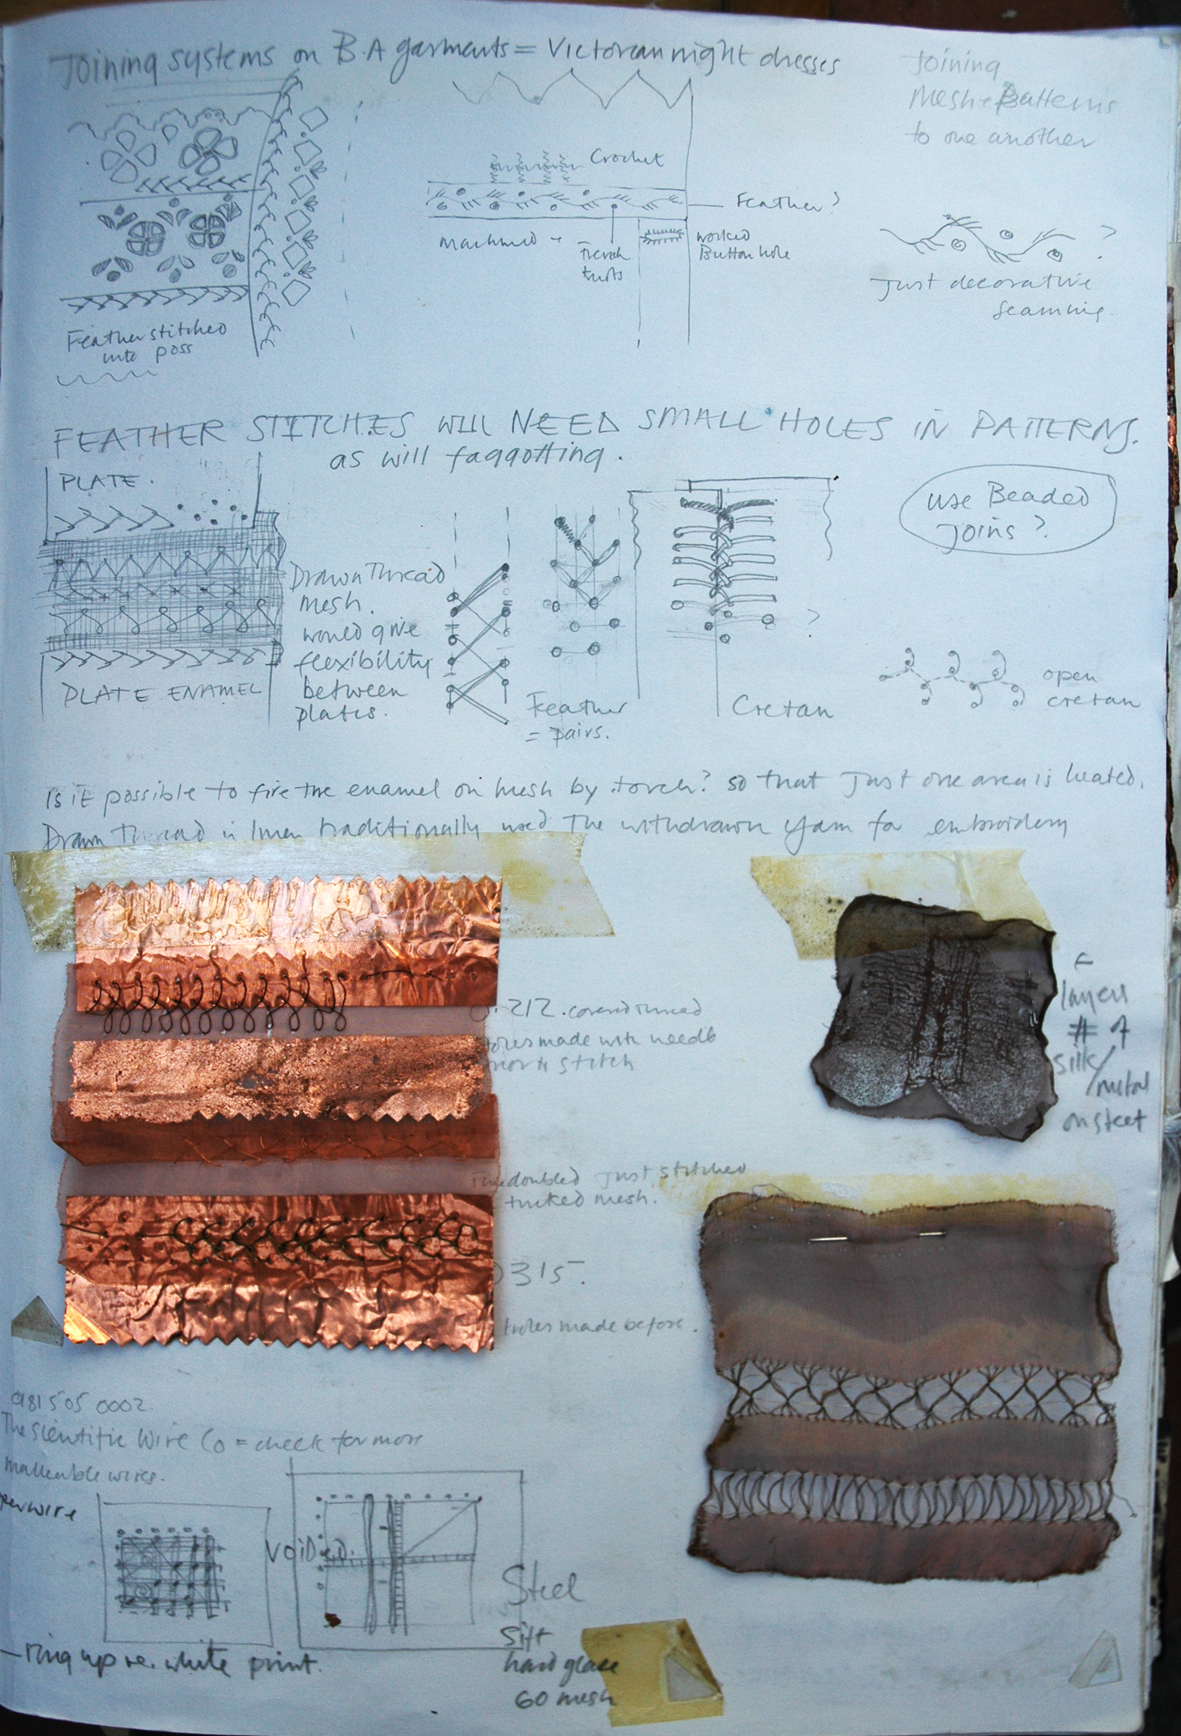 Joining systems on B.A garments = Victorian night dresses
Joining
Mesh + Patterns
to one another
Crochet
Feather?
Machined
French
knots
worked
Button hole
?
Just decorative
seaming.
Feather stitched
into poss
FEATHER STITCHES WILL NEED SMALL HOLES IN PATTERNS.
as will faggotting.
PLATE.
use Beaded
Joins?
Drawn Thread
mesh.
would give
flexibility
between
plates.
PLATE ENAMEL
Feather
= pairs.
?
Cretan
open
cretan
Is it possible to fire the enamel on mesh by torch? so that Just one area is heated.
Drawn Thread in linen traditionally used The withdrawn yarn for embroidery
layers
# of
silk/
metal
on steel
212. covered thread
holes made with needle
prior to stitch
doubled Just stitched
tucked mesh.
0315.
holes made before.
0181 505 0002.
The Scientific Wire Co = check for more
malleable wires.
wire
Voided.
Steel
sift
hard glase
60 mesh
– ring up re. white print.